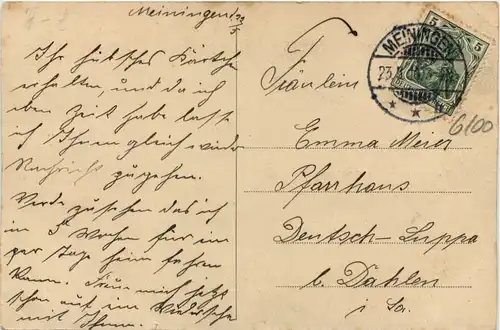 Meiningen 23/5
Ihr hübsches Kärtchen
erhalten, und da ich
eben Zeit habe lasse
ich Ihnen gleich wieder
Nachricht zugehen.
Werde zusehen das ich
in 3 Wochen für ein
par Tage heim fahren
kann. Freue mich jetzt
schon auf ein Wiedersehen
mit Ihnen.
Fräulein
Emma Meier
Pfarrhaus
Deutsch-Luppa
b. Dahlen
i Sa.
MEININGEN
23.
5 5
6100